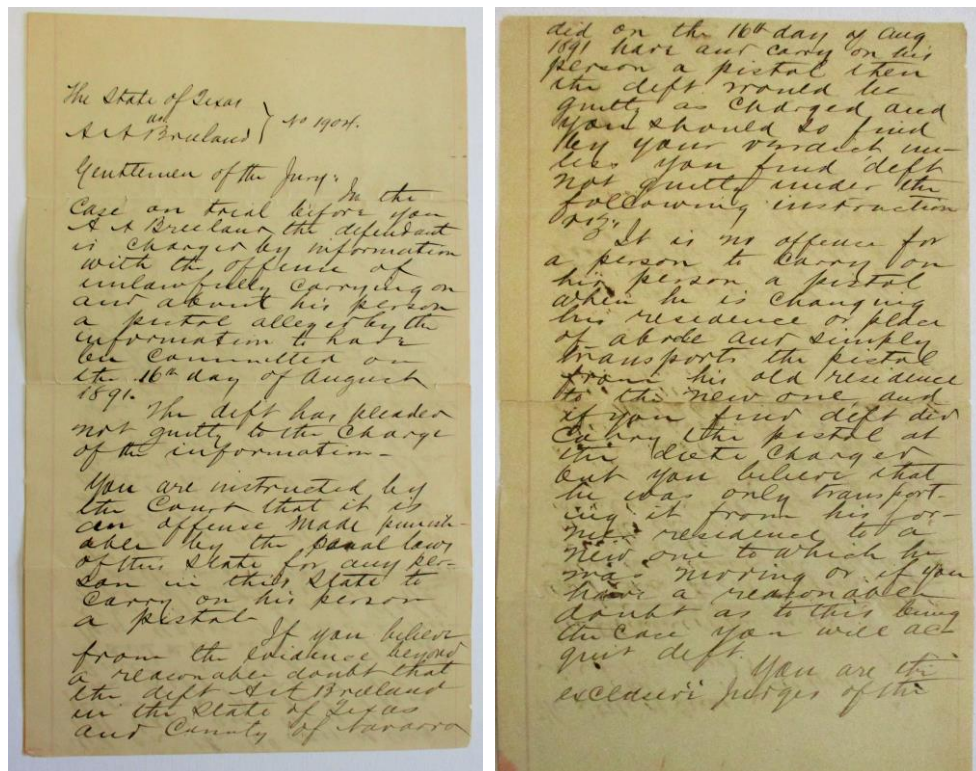 The State of Texas
vs
A A Breeland } No 1904.
Gentlemen of the Jury:
In the
case on trial before you
A A Breeland the defendant
is charged by information
with the offense of
unlawfully carrying on
and about his person
a pistol alleged by the
information to have
been committed on
the 16th day of August
1891.
The deft has pleaded
not guilty to the charge
of the information -
You are instructed by
the Court that it is
an offense made punish-
able by the penal laws
of this State for any per-
son in this State to
carry on his person
a pistol
If you believe
from the evidence beyond
a reasonable doubt that
the deft A A Breeland
in the State of Texas
and County of Navarro
did on the 16th day of Aug
1891 have and carry on his
person a pistol then
the deft would be
guilty as charged and
you should so find
by your verdict un-
less you find deft
not guilty under the
following instruction
viz:
It is no offence for
a person to carry on
his person a pistol
when he is changing
his residence or place
of abode and simply
transports the pistol
from his old residence
to the new one, and
if you find deft did
carry the pistol at
the date charged
but you believe that
he was only transport-
ing it from his for-
mer residence to a
new one to which he
was moving or if you
have a reasonable
doubt as to this being
the case you will ac-
quit deft.
You are the
exclusive judges of the